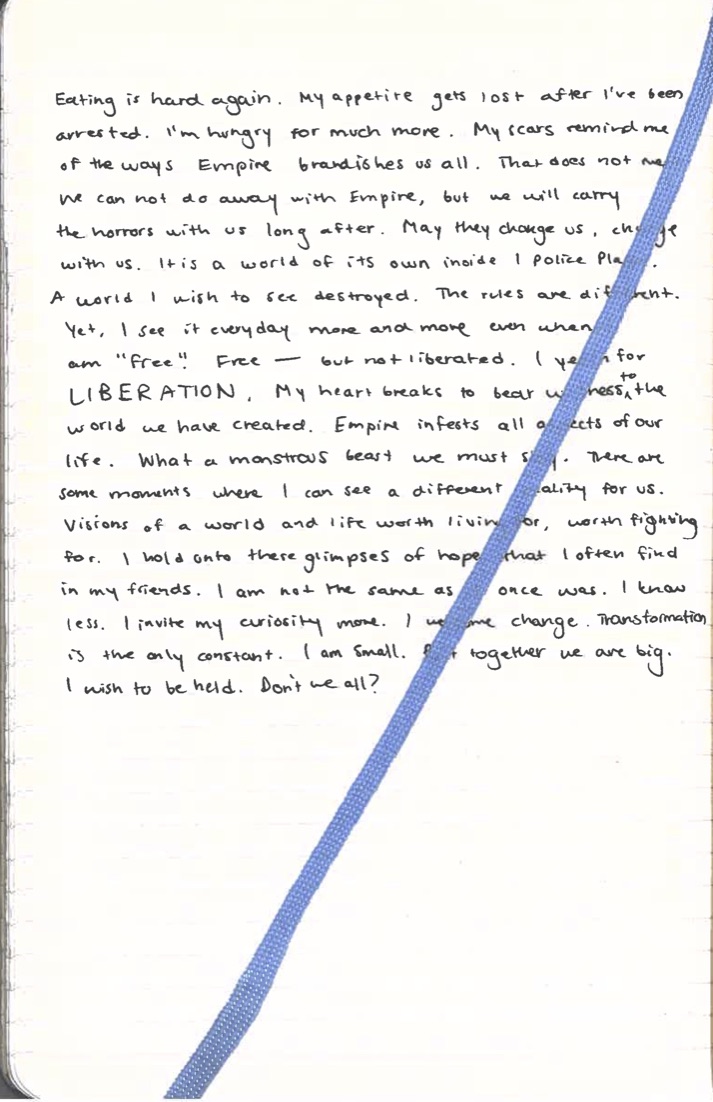 Eating is hard again. My appetite gets lost after I've been
arrested. I'm hungry for much more. My scars remind me
of the ways Empire brandishes us all. That does not
we can not do away with Empire, but we will carry
the horrors with us long after. May they change us, change
with us. It is a world of its own inside 1 Police
A world I wish to see destroyed. The rules are different.
Yet, I see it everyday more and more even when
am "free". Free — but not liberated. I yearn for
LIBERATION. My heart breaks to bear witness to the
world we have created. Empire infests all aspects of our
life. What a monstrous beast we must. There are
some moments where I can see a different reality for us.
Visions of a world and life worth living for, worth fighting
for. I hold onto these glimpses of hope that I often find
in my friends. I am not the same as once was. I know
less. I invite my curiosity more. I welcome change. Transformation
is the only constant. I am small. But together we are big.
I wish to be held. Don't we all?